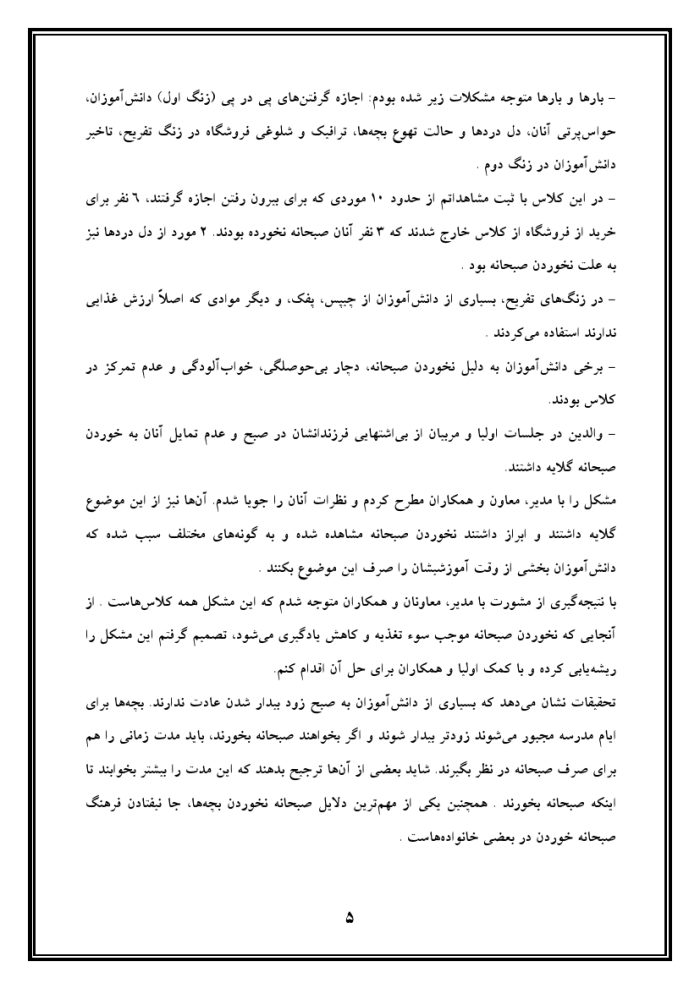 - بارها و بارها متوجه مشکلات زیر شده بودم: اجازه گرفتن‌های پی در پی (زنگ اول) دانش‌آموزان،
حواس‌پرتی آنان، دل دردها و حالت تهوع بچه‌ها، ترافیک و شلوغی فروشگاه در زنگ تفریح، تاخیر
دانش‌آموزان در زنگ دوم .
- در این کلاس با ثبت مشاهداتم از حدود ۱۰ موردی که برای بیرون رفتن اجازه گرفتند، ۶ نفر برای
خرید از فروشگاه از کلاس خارج شدند که ۳ نفر آنان صبحانه نخورده بودند. ۲ مورد از دل دردها نیز
به علت نخوردن صبحانه بود .
- در زنگ‌های تفریح، بسیاری از دانش‌آموزان از چیپس، پفک، و دیگر موادی که اصلاً ارزش غذایی
ندارند استفاده می‌کردند .
- برخی دانش‌آموزان به دلیل نخوردن صبحانه، دچار بی‌حوصلگی، خواب‌آلودگی و عدم تمرکز در
کلاس بودند.
- والدین در جلسات اولیا و مربیان از بی‌اشتهایی فرزندانشان در صبح و عدم تمایل آنان به خوردن
صبحانه گلایه داشتند.
مشکل را با مدیر، معاون و همکاران مطرح کردم و نظرات آنان را جویا شدم. آن‌ها نیز از این موضوع
گلایه داشتند و ابراز داشتند نخوردن صبحانه مشاهده شده و به گونه‌های مختلف سبب شده که
دانش‌آموزان بخشی از وقت آموزشیشان را صرف این موضوع بکنند .
با نتیجه‌گیری از مشورت با مدیر، معاونان و همکاران متوجه شدم که این مشکل همه کلاس‌هاست . از
آنجایی که نخوردن صبحانه موجب سوء تغذیه و کاهش یادگیری می‌شود، تصمیم گرفتم این مشکل را
ریشه‌یابی کرده و با کمک اولیا و همکاران برای حل آن اقدام کنم.
تحقیقات نشان می‌دهد که بسیاری از دانش‌آموزان به صبح زود بیدار شدن عادت ندارند. بچه‌ها برای
ایام مدرسه مجبور می‌شوند زودتر بیدار شوند و اگر بخواهند صبحانه بخورند، باید مدت زمانی را هم
برای صرف صبحانه در نظر بگیرند. شاید بعضی از آن‌ها ترجیح بدهند که این مدت را بیشتر بخوابند تا
اینکه صبحانه بخورند . همچنین یکی از مهم‌ترین دلایل صبحانه نخوردن بچه‌ها، جا نیفتادن فرهنگ
صبحانه خوردن در بعضی خانواده‌هاست .
۵